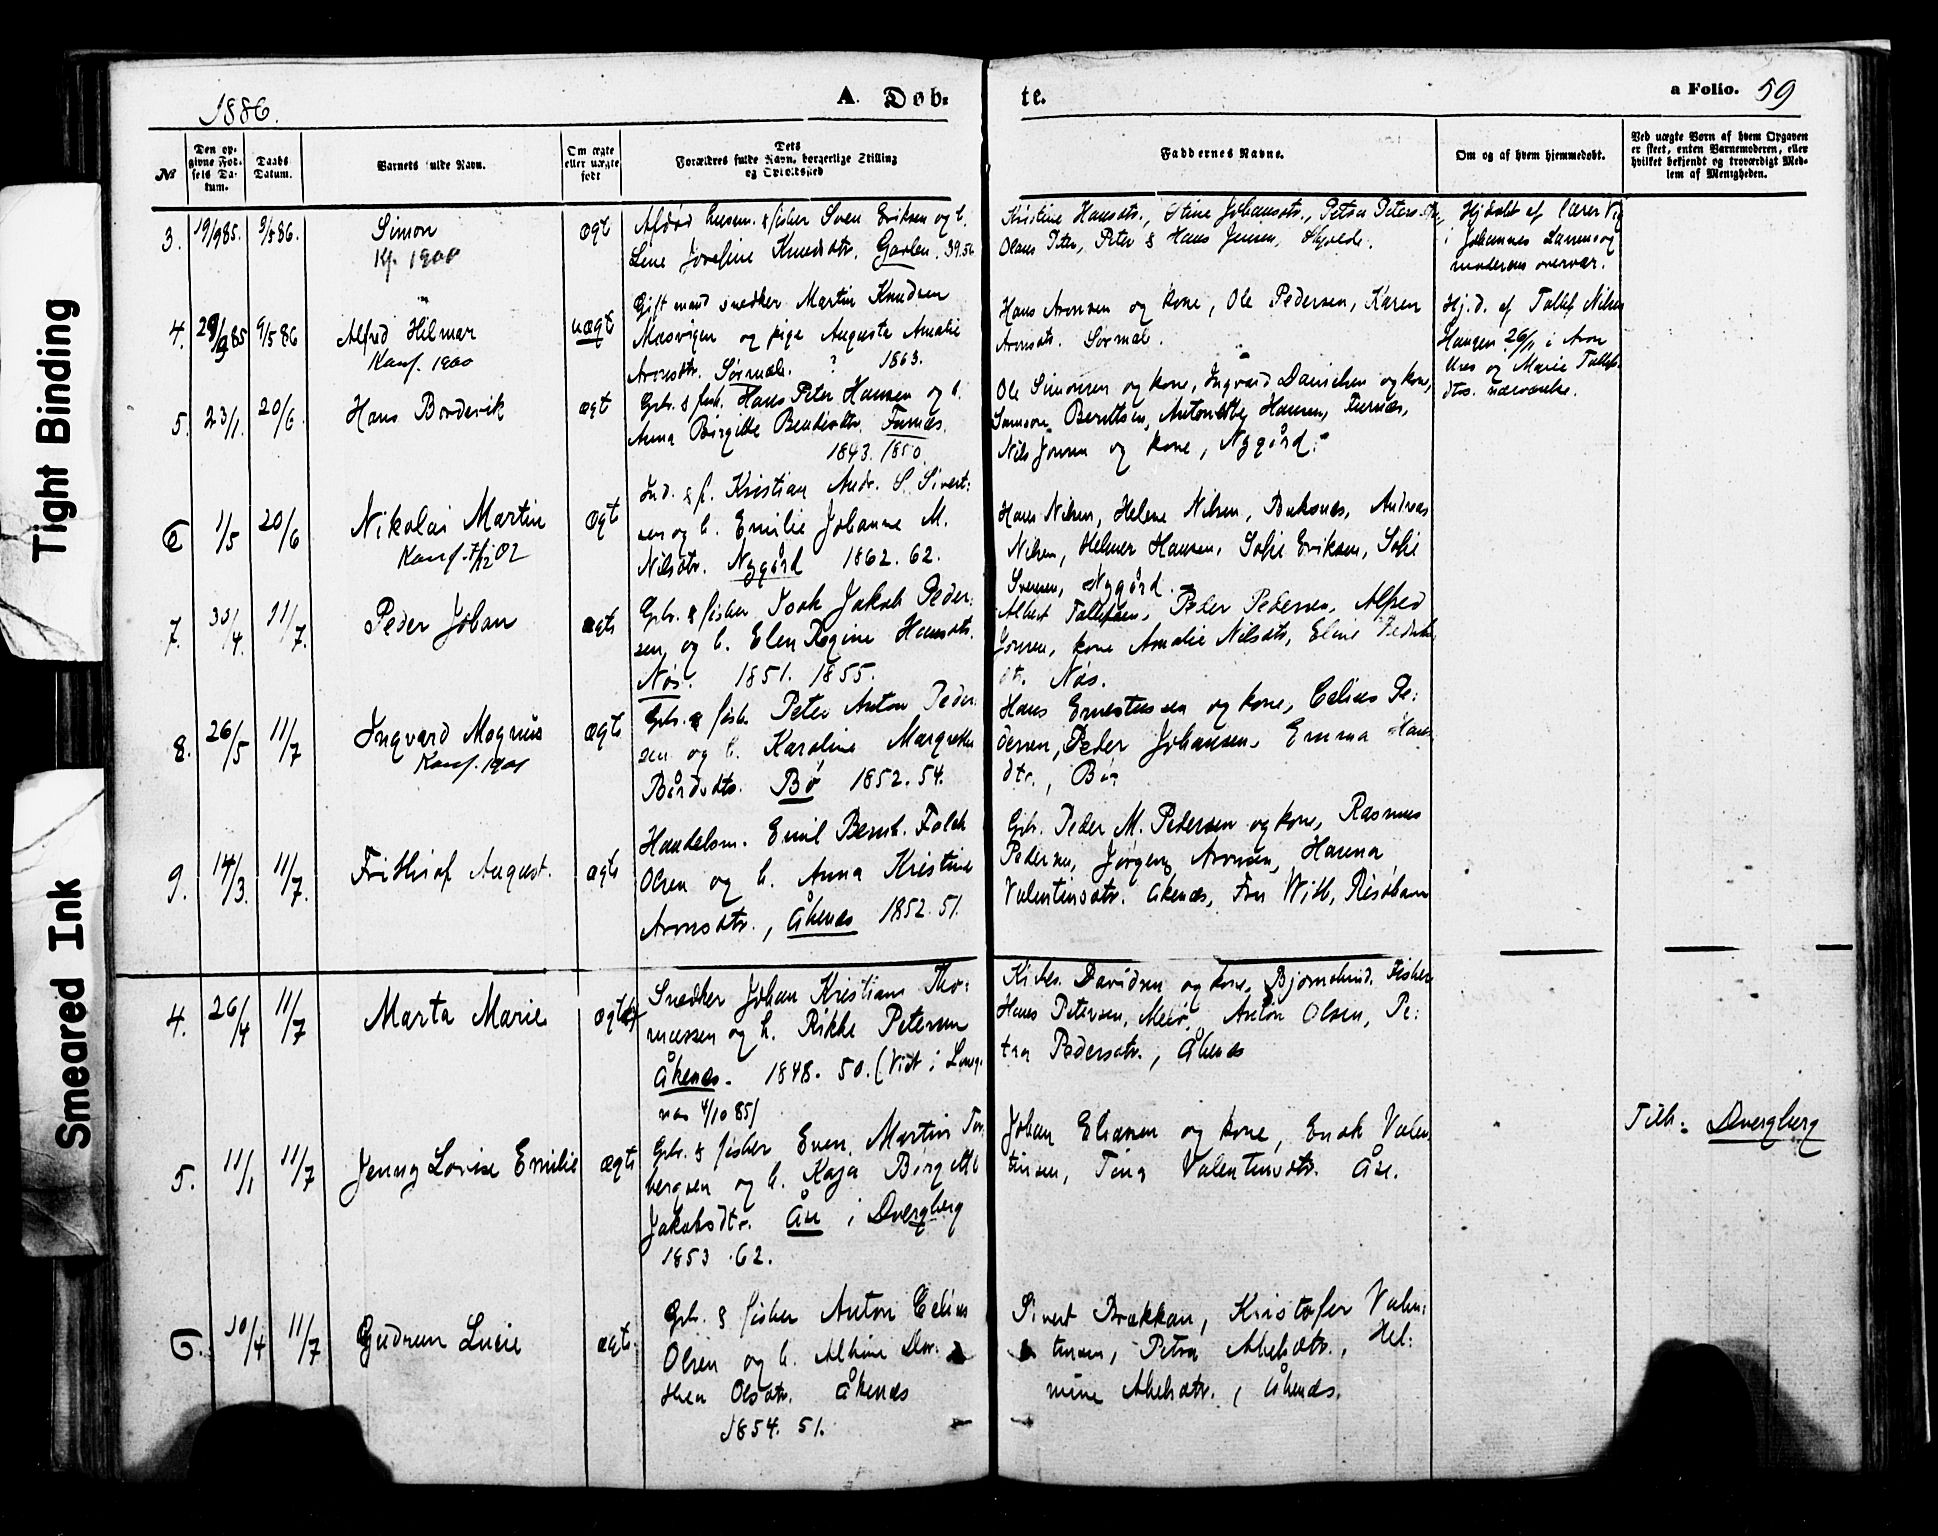 Tight Binding
Smeared Ink
1886.
A. Døb-
te.
a Folio. 59
№
Den op-
givne Fød-
sels Da-
tum.
Daabs
Datum.
Barnets fulde Navn.
Om ægte
eller uægte
født
Dets
Forældres fulde Navn, borgerlige Stilling
og Opholdssted
Faddernes Navne.
Om og af hvem hjemmedøbt.
Ved uægte Børn af hvem Opgaven
er skeet, enten Barnemoderen, eller
hvilket bekjendt og troværdigt Med-
lem af Menigheden.
3. 19/9 85. 9/5 86. Simon ægt
Kf. 1900
Afdød husm. & fisker Sven Eriksen og h.
Line Josefine Knudsdtr. Gavlen. 39.50
Kristine Hansdtr., Stine Johansdtr., Petra Peters
Olaus Peter, Peter & Hans Jensen, Skjolde.
Hjdøbt af lærer Vig
i Johannes Larsens og
moderens overvær.
4. 29/9 85 9/5 86 Alfred Hilmar uægt
Konf. 1900
Gift mand snedker Martin Knudsen
Masvigen og pige Augusta Amalie
Aronsdtr. Sørmæle. ? 1863.
Hans Aronsen og kone, Ole Pedersen, Karen
Aronsdtr. Sørmæle.
Hj.d. af Tollef Nilsen
Haugen 26/11 i Aron
Urs og Marie Tollef
dtrs. nærværelse.
5. 23/1. 20/6. Hans Bordevik ægt
Grb. & fisk. Hans Peter Hansen og h.
Anna Birgitte Bendiksdtr. Furnæs.
1843. 1850.
Ole Simonsen og kone, Ingvard Danielsen og kone,
Samson Berntsen, Antonette Hansen, Furnæs,
Nils Jonsen og kone, Nygård.
6 1/5 20/6 Nikolai Martin ægt
Konf. 7/12 02
Ind. & f. Kristian Andr. S. Sivert-
sen og h. Emilie Johanne M.
Nilsdtr. Nygård 1862. 62.
Hans Nilsen, Helene Nilsen, Buksnæs, Andreas
Nilsen, Helmer Hansen, Sofie Eriksen, Sofie
Svensen, Nygård.
7. 30/4. 11/7. Peder Johan ægte
Grb. & fisker Isak Jakob Peder-
sen og h. Elen Regine Hansdtr.
Nøs. 1851. 1855.
Albert Tollefsen, Peder Pedersen, Alfred
Jonsen, kone Amalie Nilsdtr, Eline Peders
dtr. Nøs.
8. 26/5 11/7 Ingvard Magnus ægte
Konf. 1901
Grb. & fisker Peter Anton Peder-
sen og h. Karoline Margrethe
Bårdsdtr. Bø 1852. 54.
Hans Ernestussen og kone, Celius Pe-
dersen, Peder Johansen, Emma Hans
dtr., Bø
9. 14/3. 11/7. Frithiof August. ægte
Handelsm. Emil Bernh. Falck
Olsen og h. Anna Kristine
Aronsdtr., Åkenæs 1852. 51.
Grb. Peder M. Pedersen og kone, Rasmus
Pedersen, Jørgen Aronsen, Hanna
Valentinsdtr. Åkenæs, Fru With, Risøhavn
4. 26/4 11/7 Marta Marie ægte
Snedker Johan Kristian Tho-
massen og h. Rikke Petersen
Åkenæs. 1848. 50. (Viet i Lang-
næs 4/10 85)
Davidsen og kone, Bjørnskind, Fisker
Hans Petersen, Anton Olsen, Pe-
tra Pedersdtr., Åkenæs
5. 11/1 11/7 Jenny Lovise Emilie ægte
Grb. & fisker Even Martin Tor-
bergsen og h. Kaja Birgitte
Jakobsdtr. Åse i Dvergberg
1853. 62.
Johan Eliassen og kone, Enok Valen-
tinsen, Tina Valentinsdtr. Åse.
Tilh. Dvergberg
6. 10/4 11/7 Gudrun Lucie ægte
Grb. & fisker Anton Celius
Olsen og h. Albine Dor-
thea Olsdtr. Åkenæs
1854. 51.
Sivert Brækkan, Kristofer Valen-
tinsen, Petra Abelsdtr., Hel-
mine Abelsdtr., Åkenæs.